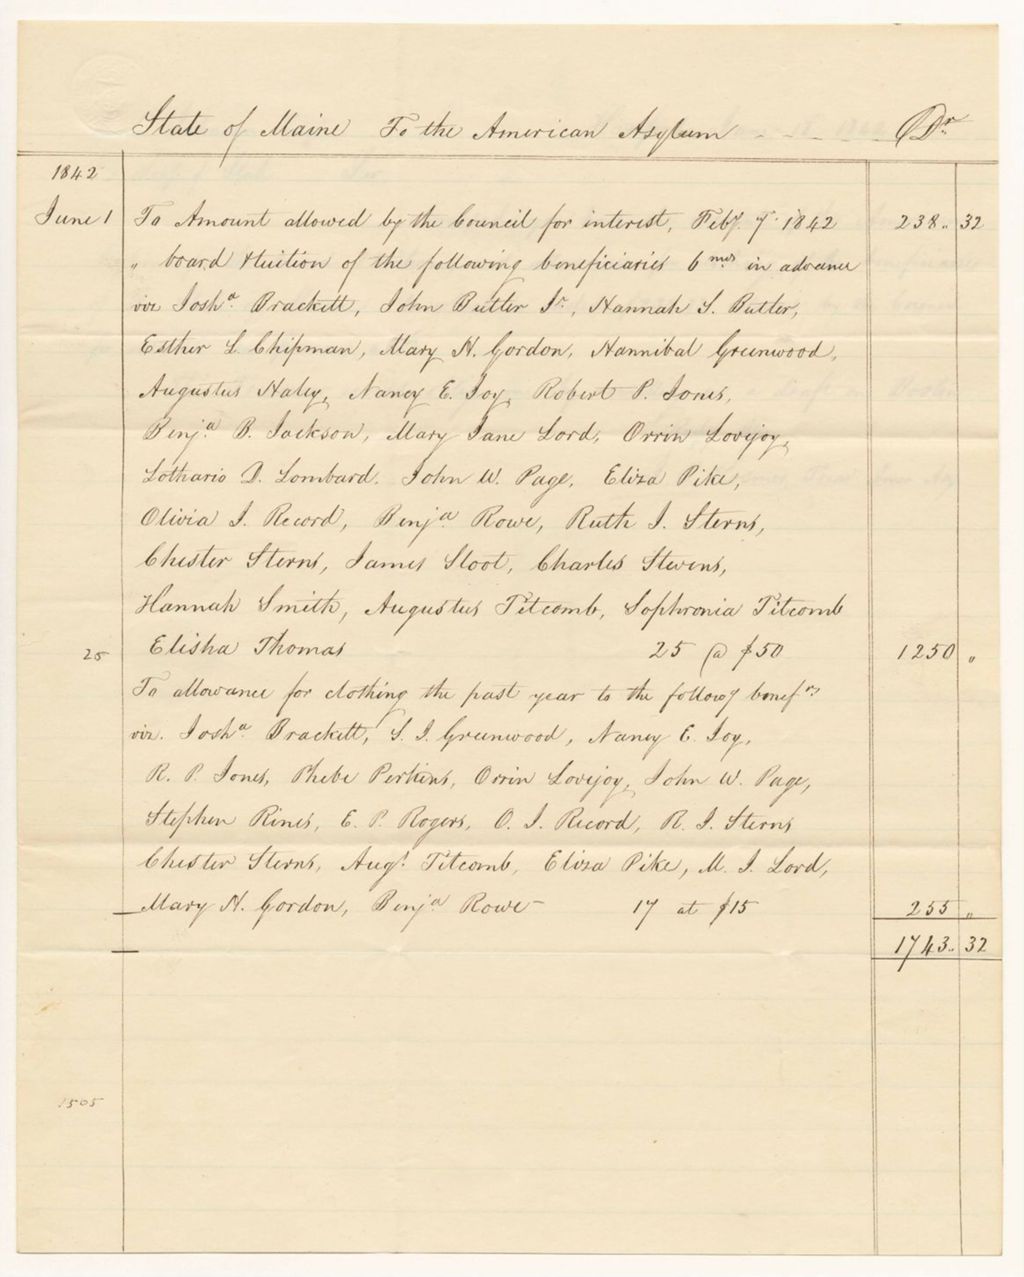 State of Maine To the American Asylum - - - Dr
1842
June 1 To Amount allowed by the Council for interest, Feby. 7. 1842 238.. 32
" board & tuition of the following beneficiaries 6 mos in advance
viz Josha. Brackett, John Butler Jr., Hannah S. Butler,
Esther L Chipman, Mary H. Gordon, Hannibal Greenwood,
Augustus Haley, Nancy E. Joy, Robert P. Jones,
Benja. B. Jackson, Mary Jane Lord, Orrin Lovejoy,
Lothario D. Lombard. John W. Page, Eliza Pike,
Olivia J. Record, Benja Rowe, Ruth J. Sterns,
Chester Sterns, James Sloot, Charles Stevens,
Hannah Smith, Augustus Titcomb, Sophronia Titcomb
25 Elisha Thomas 25 @ $50 1250 "
To allowance for clothing the past year to the followg benefrs
viz. Josha Brackett, S. J. Greenwood, Nancy E. Joy,
R. P. Jones, Phebe Perkins, Orrin Lovejoy, John W. Page,
Stephen Rines, E. P. Rogers, O. J. Record, R. J. Sterns
Chester Sterns, Augs. Titcomb, Eliza Pike, M. J. Lord,
Mary H. Gordon, Benja Rowe 17 at $15 255 "
1743.. 32
1505